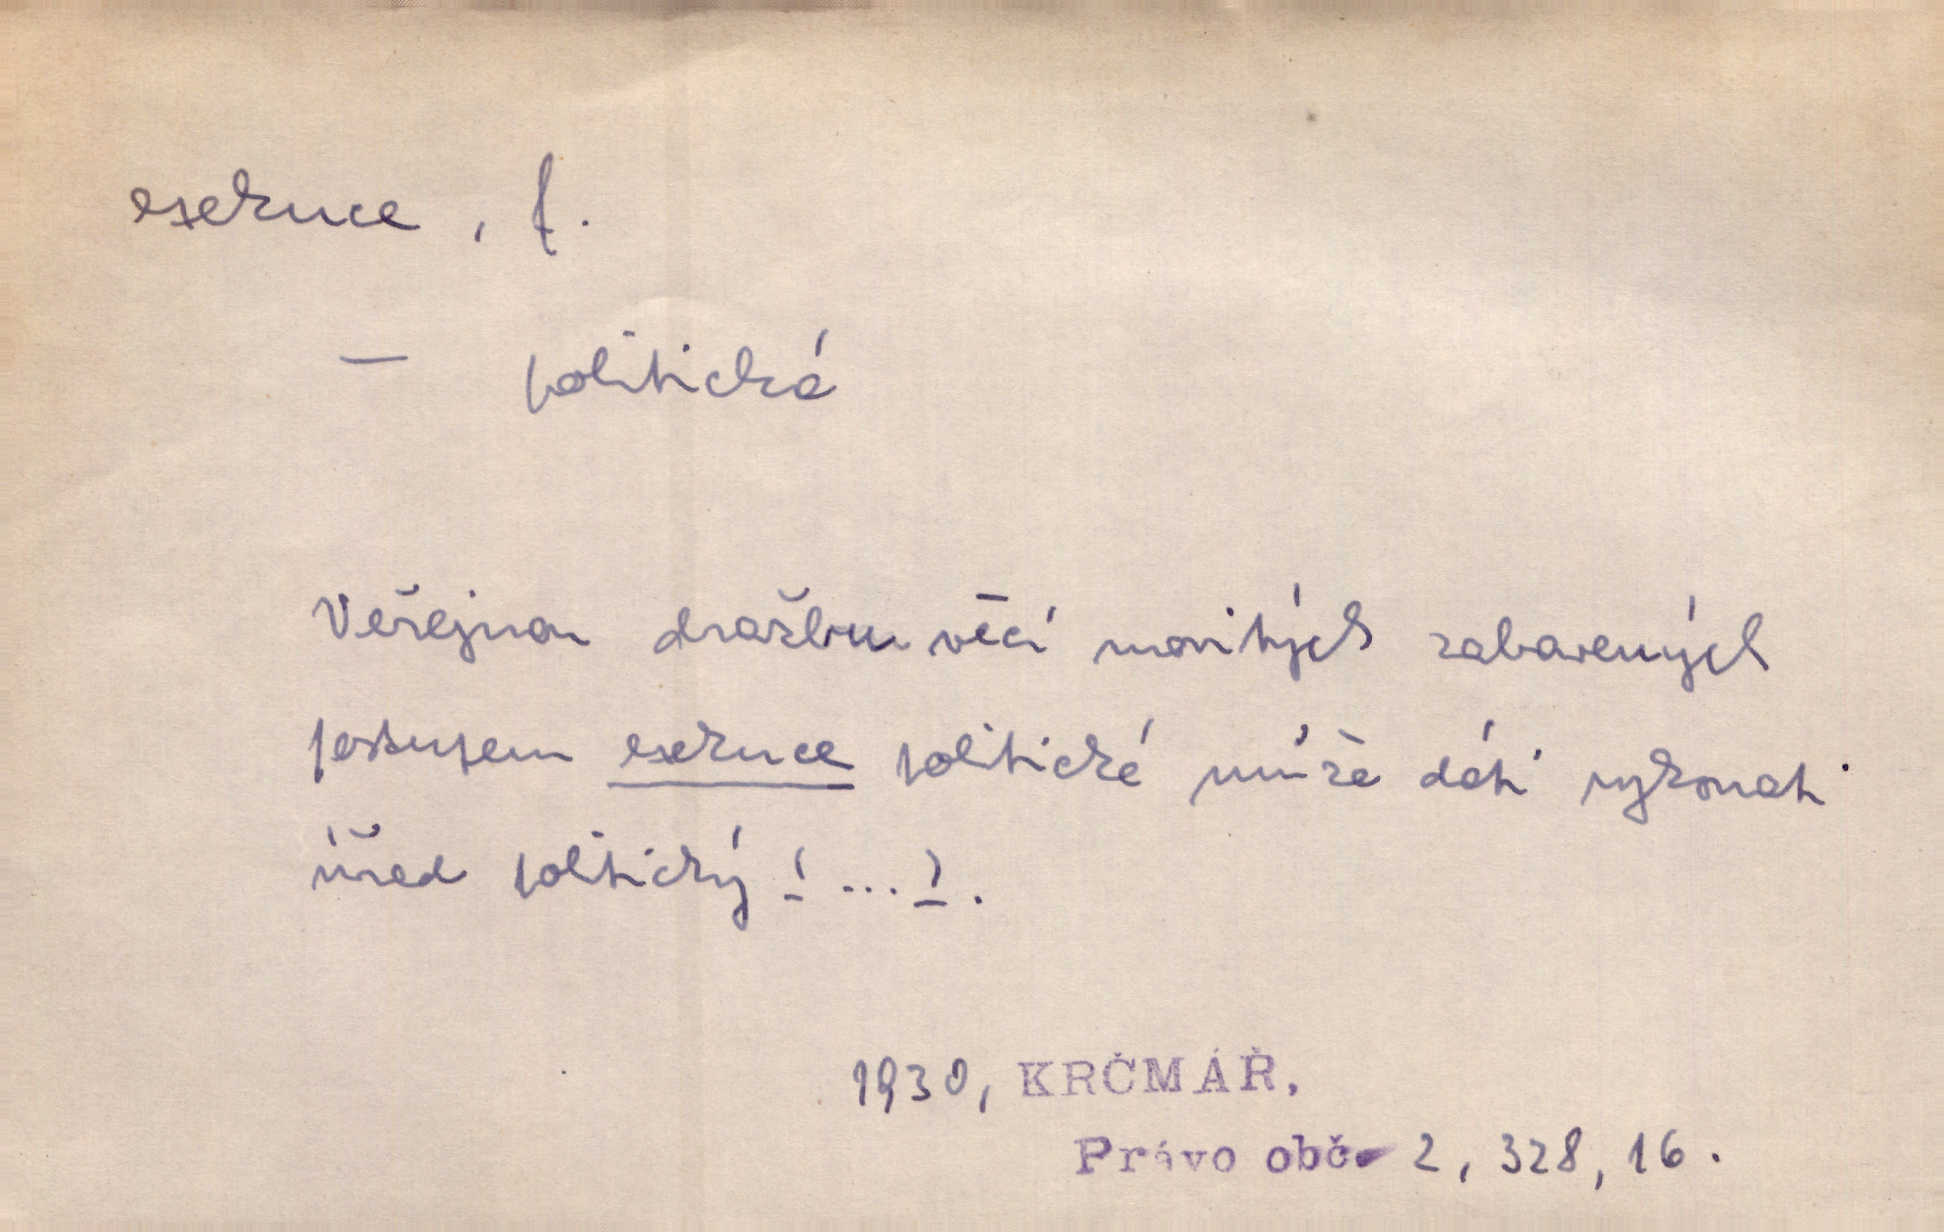 exekuce, f.
— politická
Veřejnou dražbu věcí movitých zabavených
postupem exekuce politické může dáti vykonati
úřad politický (...).
1930, KRČMÁŘ,
Právo obč. 2, 328, 16.